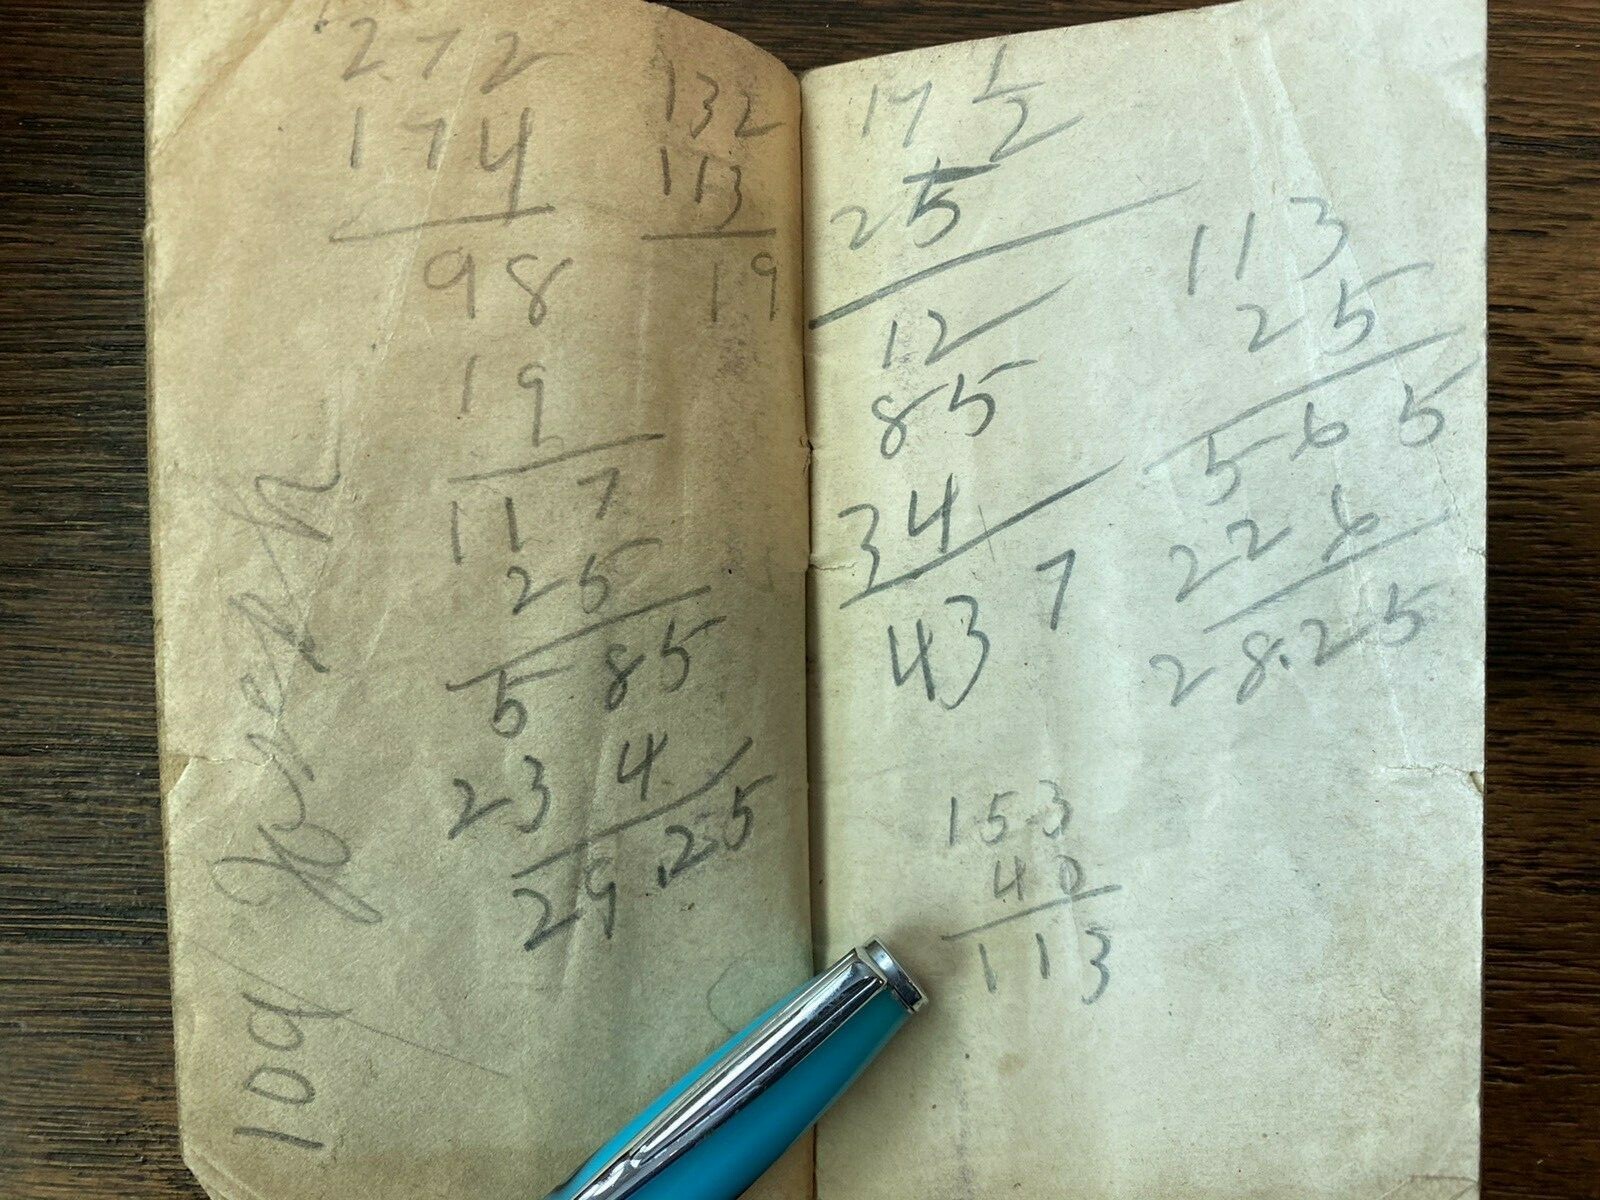 272
174
98
19
117
25
585
234
29.25
132
113
19
109 Joseph
17 1/2
25
12
85
34
437
113
25
565
226
28.25
153
40
113